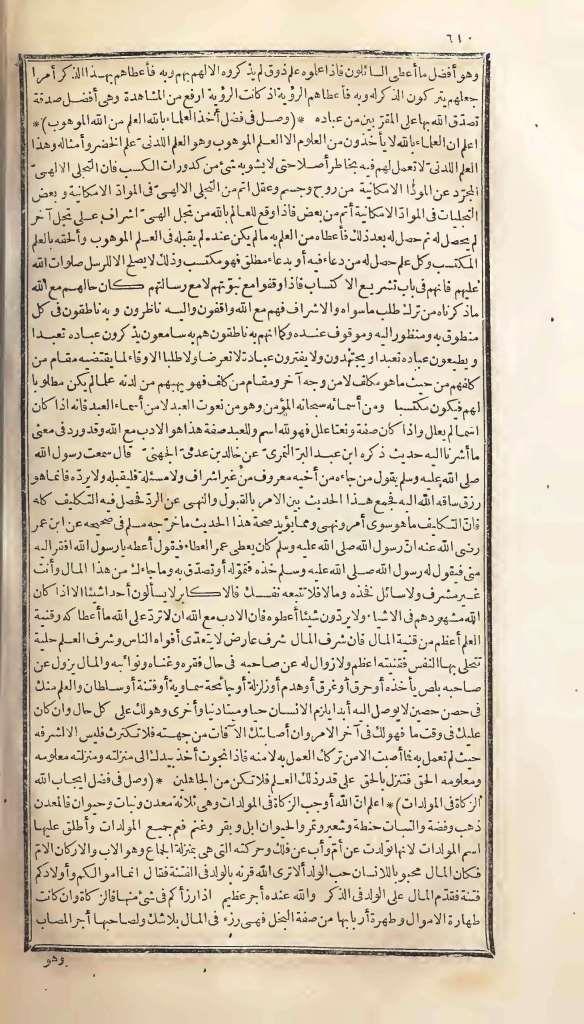 ٦١٠
وهو أفضل ما أعطى السائلون فاذا علموه علم ذوق لم يذكروه الا لهم بهم وبه فأعطاهم بهذا الذكر أمرا
جعلهم يتركون الذكر له وبه فأعطاهم الرؤية اذ كانت الرؤية ارفع من المشاهدة وهى أفضل صدقة
تصدّق الله بها على المقرّبين من عباده * (وصل فى فضل أخذ العلماء بالله العلم من الله الموهوب) *
اعلم ان العلماء بالله لا يأخذون من العلوم الا العلم الموهوب وهو العلم اللدنى علم الخضر وأمثاله وهذا
العلم اللدنى لا تعمل لهم فيه بخاطر أصلا حتى لا يشوبه شئ من كدورات الكسب فان التجلى الالهىّ
المجرّد عن الموادّ الامكانية من روح وجسم وعقل اتم من التجلى الالهىّ فى الموادّ الامكانية وبعض
التجليات فى الموادّ الامكانية أتم من بعض فاذا وقع للعالم بالله من تجل الهىّ اشراف على تجل آخر
لم يحصل له ثم حصل له بعد ذلك فأعطاه من العلم به ما لم يكن عنده لم يقبله فى العلم الموهوب وألحقه بالعلم
المكتسب وكل علم حصل له من دعاء فيه أو بدعاء مطلق فهو مكتسب وذلك لا يصلح الا للرسل صلوات الله
عليهم فانهم فى باب تشريع الاكتساب فاذا وقفوا مع نبوّتهم لا مع رسالتهم كان حالهم مع الله
ما ذكرناه من ترك طلب ما سواه والاشراف فهم مع الله واقفون واليه ناظرون وبه ناطقون فى كل
منطوق به ومنظور اليه وموقوف عنده وكما انهم به ناطقون هم به سامعون يذكرون عباده تعبدا
ويطيعون عباده تعبدا ويجتهدون ولا يفترون عبادة لا تعرضا ولا طلبا الا وفاء لما يقتضيه مقام من
كلفهم من حيث ما هو مكلف لا من وجه آخر ومقام من كلف فهو يهبهم من لدنه علما لم يكن مطلوبا
لهم فيكون مكتسبا ومن أسمائه سبحانه المؤمن وهو من نعوت العبد لا من أسماء العبد فانه اذا كان
اسما لم يعلل واذا كان صفة ونعتا علل فهو لله اسم وللعبد صفة هذا هو الادب مع الله وقد ورد فى معنى
ما أشرنا اليه حديث ذكره ابن عبد البرّ النمرى عن خالد بن عدى الجهنى قال سمعت رسول الله
صلى الله عليه وسلم يقول من جاءه من أخيه معروف من غير اشراف ولا مسئلة فليقبله ولا يردّه فانما هو
رزق ساقه الله اليه فجمع هذا الحديث بين الامر بالقبول والنهى عن الردّ فحصل فيه التكليف كله
فانّ التكليف ما هو سوى أمر ونهى ومما يؤيد صحة هذا الحديث ما خرّجه مسلم فى صحيحه عن ابن عمر
رضى الله عنه انّ رسول الله صلى الله عليه وسلم كان يعطى عمر العطاء فيقول أعطه يا رسول الله افقر اليه
منى فيقول له رسول الله صلى الله عليه وسلم خذه فتموّله أو تصدّق به وما جاءك من هذا المال وأنت
غير مشرف ولا سائل فخذه وما لا فلا تتبعه نفسك فالاكابر لا يسألون أحدا شيئا الا اذا كان
الله مشهودهم فى الاشياء ولا يردّون شيئا أعطوه فان الادب مع الله ان لا تردّ على الله ما أعطاكه وقنية
العلم أعظم من قنية المال فان شرف المال شرف عارض لا يتعدّى أفواه الناس وشرف العلم حلية
تتحلى بها النفس فقنيته اعظم ولا زوال له عن صاحبه فى حال فقره وغناه ونوائبه والمال يزول عن
صاحبه بلص يأخذه أو حرق أو غرق أو هدم أو زلزلة أو جائحة سماوية أو فتنة أو سلطان والعلم منك
فى حصن حصين لا يوصل اليه أبدا يلزم الانسان حيا وميتا دنيا وأخرى وهو لك على كل حال وان كان
عليك فى وقت ما فهو لك فى آخر الامر وان أصابتك الآفات من جهته فلا تكترث فليس الا لشرفه
حيث لم تعمل به فما أصبت الا من تركك العمل به لا منه فاذا نجوت أخذ بيدك الى منزلته ومنزلته معلومه
ومعلومه الحق فتنزل بالحق على قدر ذلك العلم فلا تكن من الجاهلين * (وصل فى فضل ايجاب الله
الزكاة فى المولدات) * اعلم انّ الله أوجب الزكاة فى المولدات وهى ثلاثة معدن ونبات وحيوان فالمعدن
ذهب وفضة والنبات حنطة وشعير وتمر والحيوان ابل وبقر وغنم فعم جميع المولدات وأطلق عليها
اسم المولدات لانها تولدت عن أم وأب عن فلك وحركته التى هى بمنزلة الجماع وهو الاب والاركان الام
فكان المال محبوبا للانسان حب الولد ألا ترى الله قرنه بالولد فى الفتنة فقال انما اموالكم وأولادكم
فتنة فقدّم المال على الولد فى الذكر والله عنده أجر عظيم اذا رزأكم فى شئ منها فالزكاة وان كانت
طهارة الاموال وطهرة أربابها من صفة البخل فهى رزء فى المال بلا شك ولصاحبها أجر المصاب
وهو